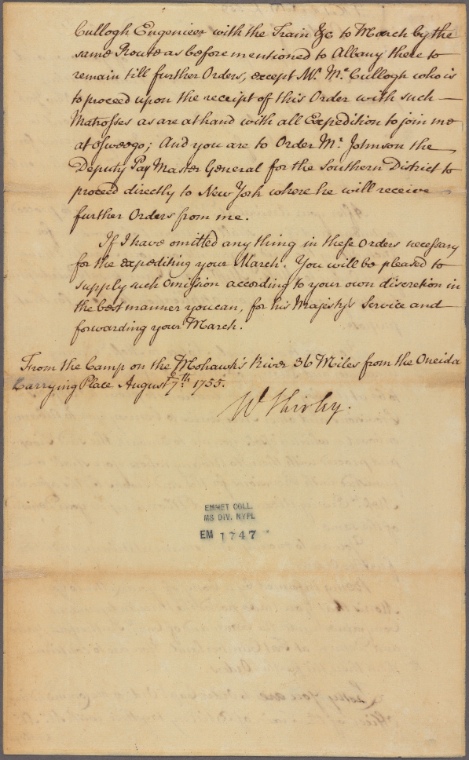 Cullogh Engenieer with the Train &c to March by the
same Route as before mentioned to Albany there to
remain till further Orders, except Mr. Mc.Cullogh who is
to proceed upon the receipt of this Order with such
Matrosses as are at hand with all Expedition to join me
at Oswego; And you are to Order Mr. Johnson the
Deputy Pay Master General for the Southern District to
proceed directly to New York where he will receive
further Orders from me.
If I have omitted any thing in these Orders necessary
for the expediting your March. You will be pleased to
supply such Omission according to your own discretion in
the best manner you can, for his Majesty's Service and
forwarding your March.
From the Camp on the Mohawk's River 36 Miles from the Oneida
Carrying Place August 7th. 1755.
W Shirley.
EMMET COLL.
MS DIV. NYPL
EM 1747